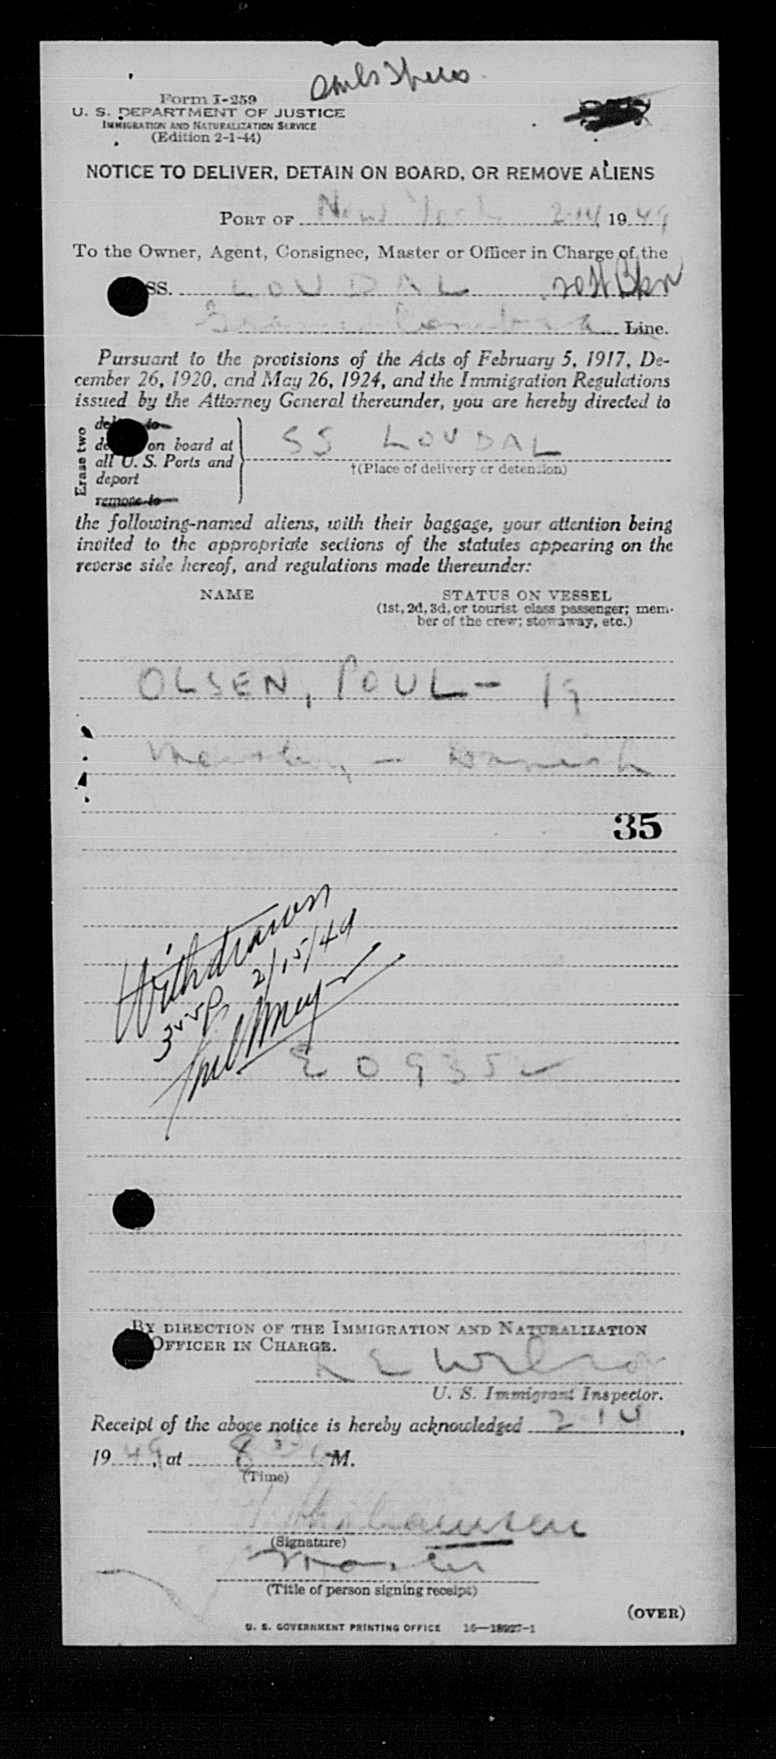 Form I-259
U. S. DEPARTMENT OF JUSTICE
IMMIGRATION AND NATURALIZATION SERVICE
(Edition 2-1-44)
NOTICE TO DELIVER, DETAIN ON BOARD, OR REMOVE ALIENS
PORT OF New York 2-14 1949
To the Owner, Agent, Consignee, Master or Officer in Charge of the
SS. LOVDAL
Line.
Pursuant to the provisions of the Acts of February 5, 1917, De-
cember 26, 1920, and May 26, 1924, and the Immigration Regulations
issued by the Attorney General thereunder, you are hereby directed to
Erase two
deliver to
on board at
all U. S. Ports and
deport
remove to
SS LOVDAL
†(Place of delivery or detention)
the following-named aliens, with their baggage, your attention being
invited to the appropriate sections of the statutes appearing on the
reverse side hereof, and regulations made thereunder:
NAME
STATUS ON VESSEL
(1st, 2d, 3d, or tourist class passenger; mem-
ber of the crew; stowaway, etc.)
OLSEN, POUL - 19
- Danish
35
Withdrawn
2/15/49
E 09352
BY DIRECTION OF THE IMMIGRATION AND NATURALIZATION
OFFICER IN CHARGE.
U. S. Immigrant Inspector.
Receipt of the above notice is hereby acknowledged 2-14,
1949, at 8 M.
(Time)
(Signature)
Master
(Title of person signing receipt)
(OVER)
U. S. GOVERNMENT PRINTING OFFICE 16—18927-1